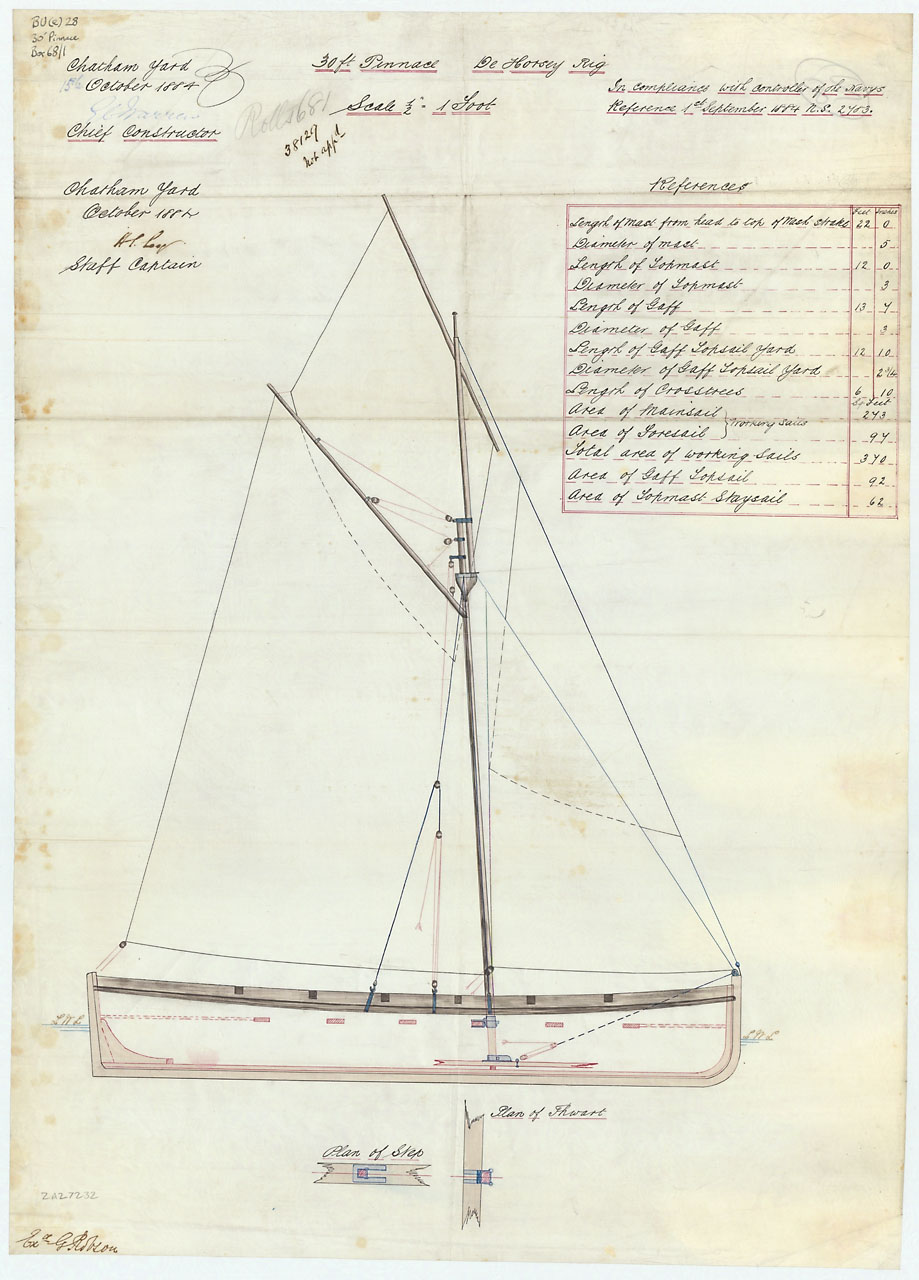 BU(c) 28
30' Pinnace
Box 68/1
Chatham Yard
15th October 1884
Chief Constructor
Rolls 681
38129
Not appd
30ft Pinnace De Horsey Rig
Scale ½" = 1 Foot
In compliance with controller of the Navys
Reference 1st September 1884 N.S. 2783.
Chatham Yard
October 1884
Staff Captain
References
Feet Inches
Length of Mast from head to top of Wash Strake 22 0
Diameter of mast 5
Length of Topmast 12 0
Diameter of Topmast 3
Length of Gaff 13 7
Diameter of Gaff 3
Length of Gaff Topsail Yard 12 10
Diameter of Gaff Topsail Yard 2¾
Length of Crosstrees 6 10
Sq Feet
Area of Mainsail 273
Working Sails
Area of Foresail 97
Total area of working Sails 370
Area of Gaff Topsail 92
Area of Topmast Staysail 62
L.W.L
L.W.L
Plan of Thwart
Plan of Step
ZAZ7232
Exd G Robson